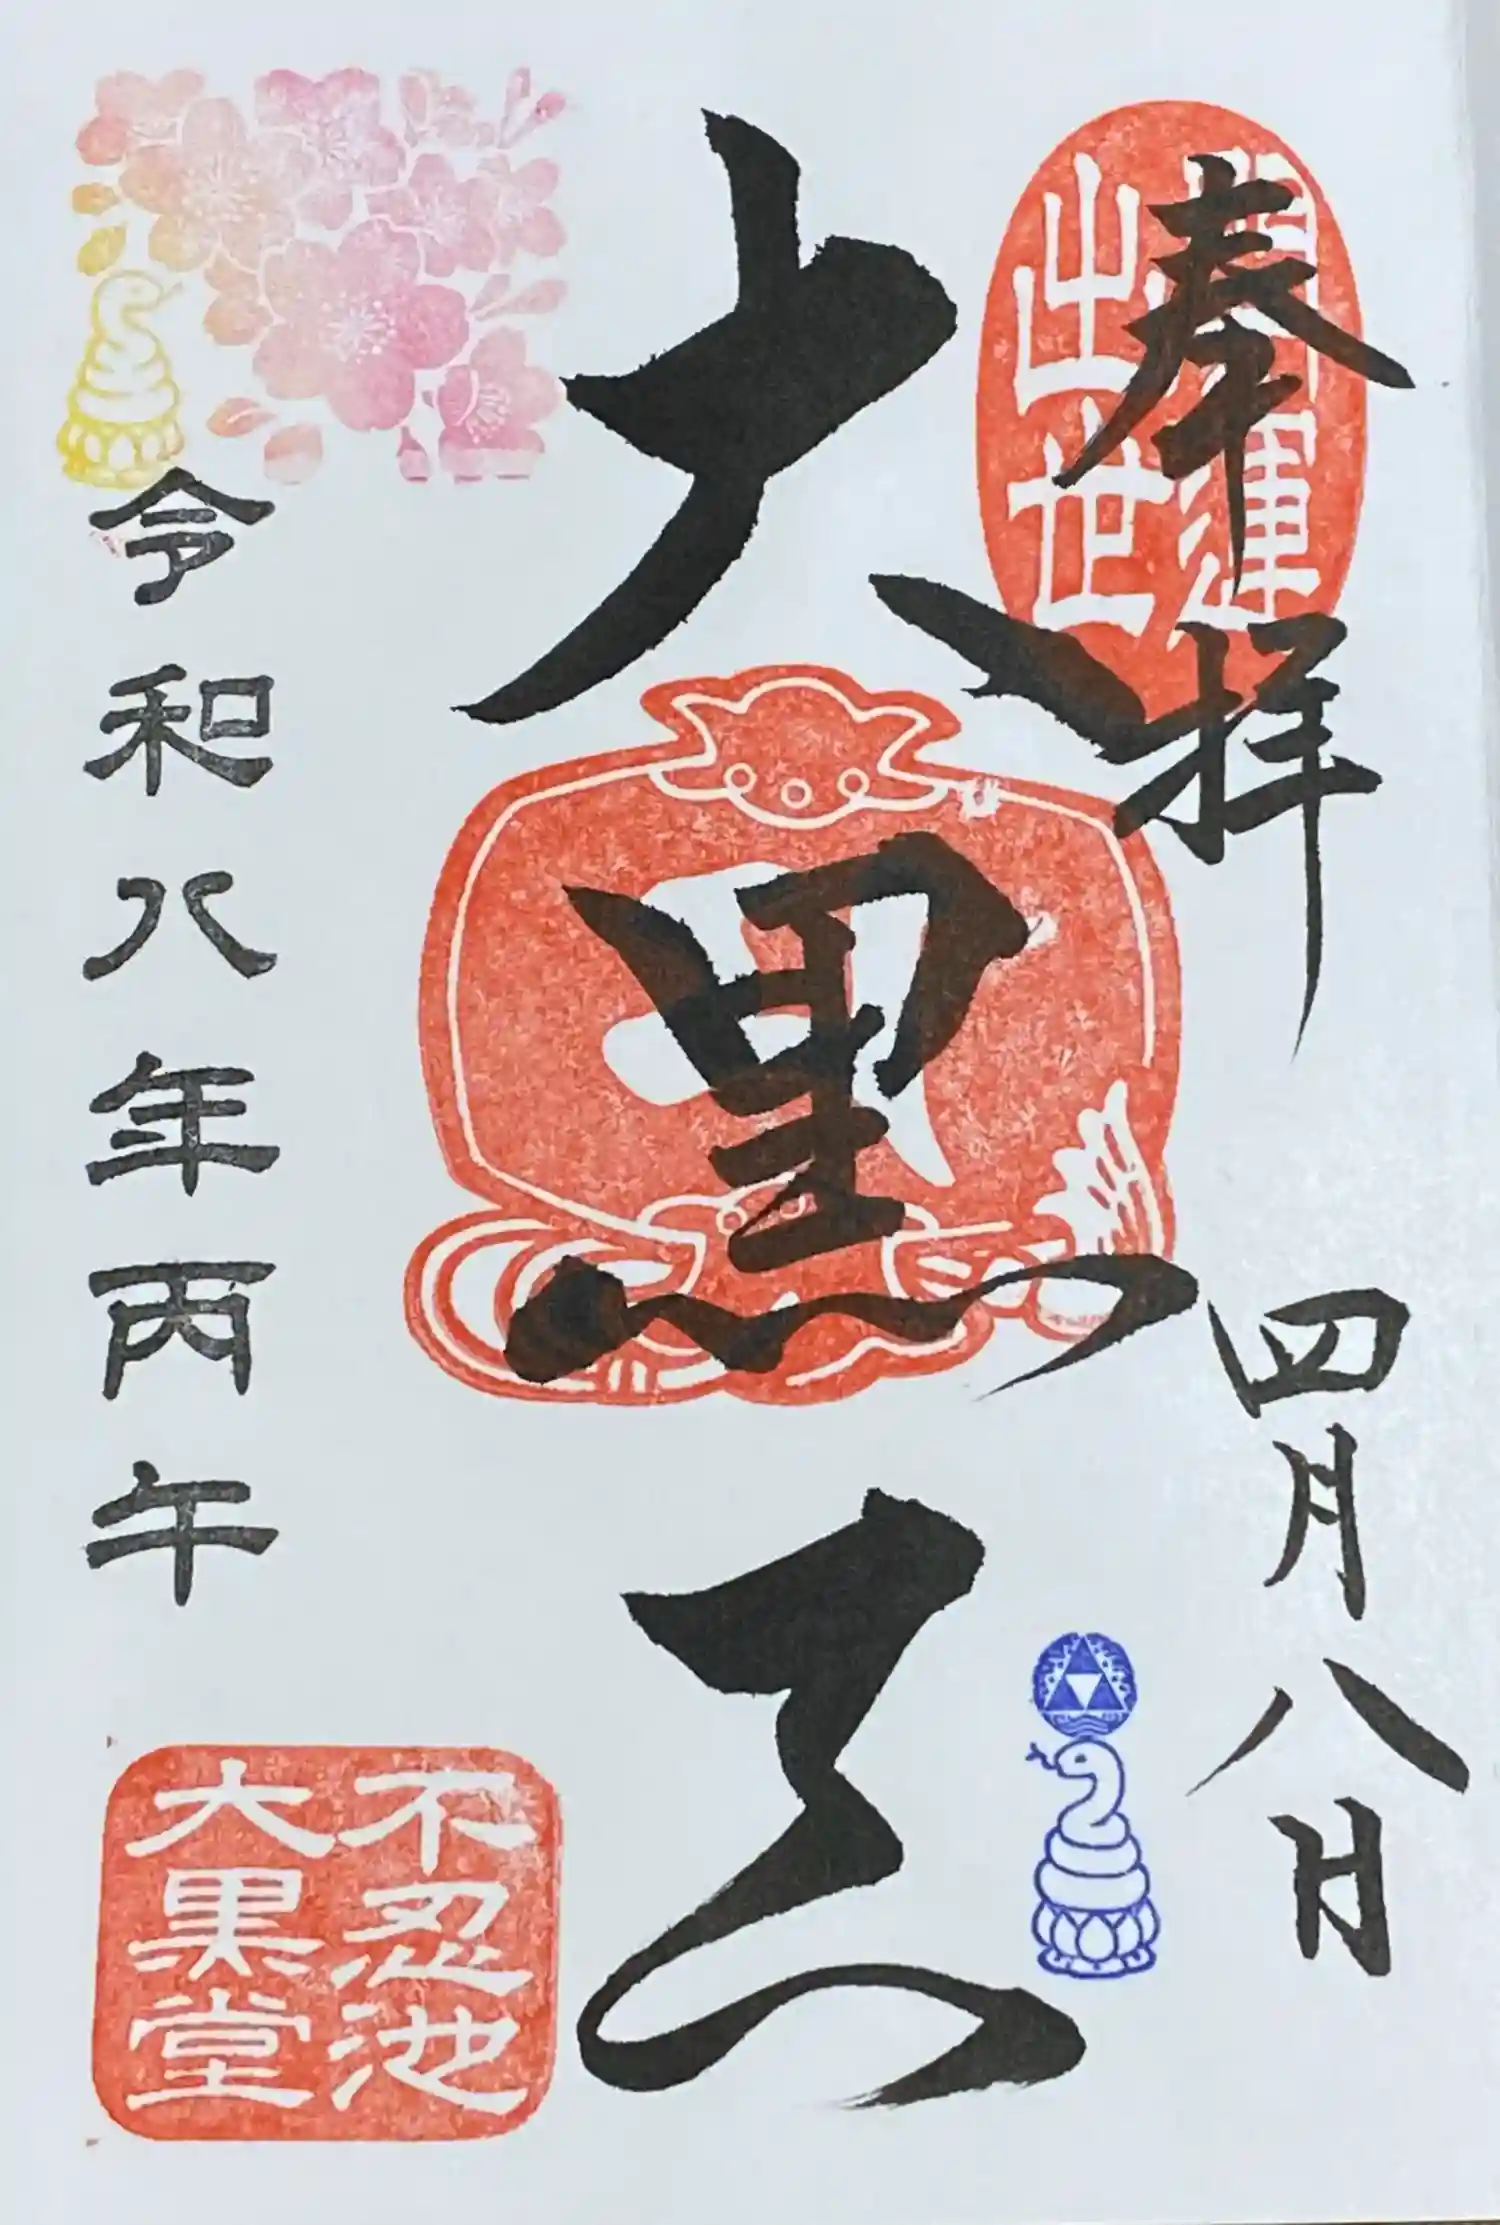 奉拝
開運
出世
四月八日
大黒天
令和八年丙午
不忍池
大黒堂